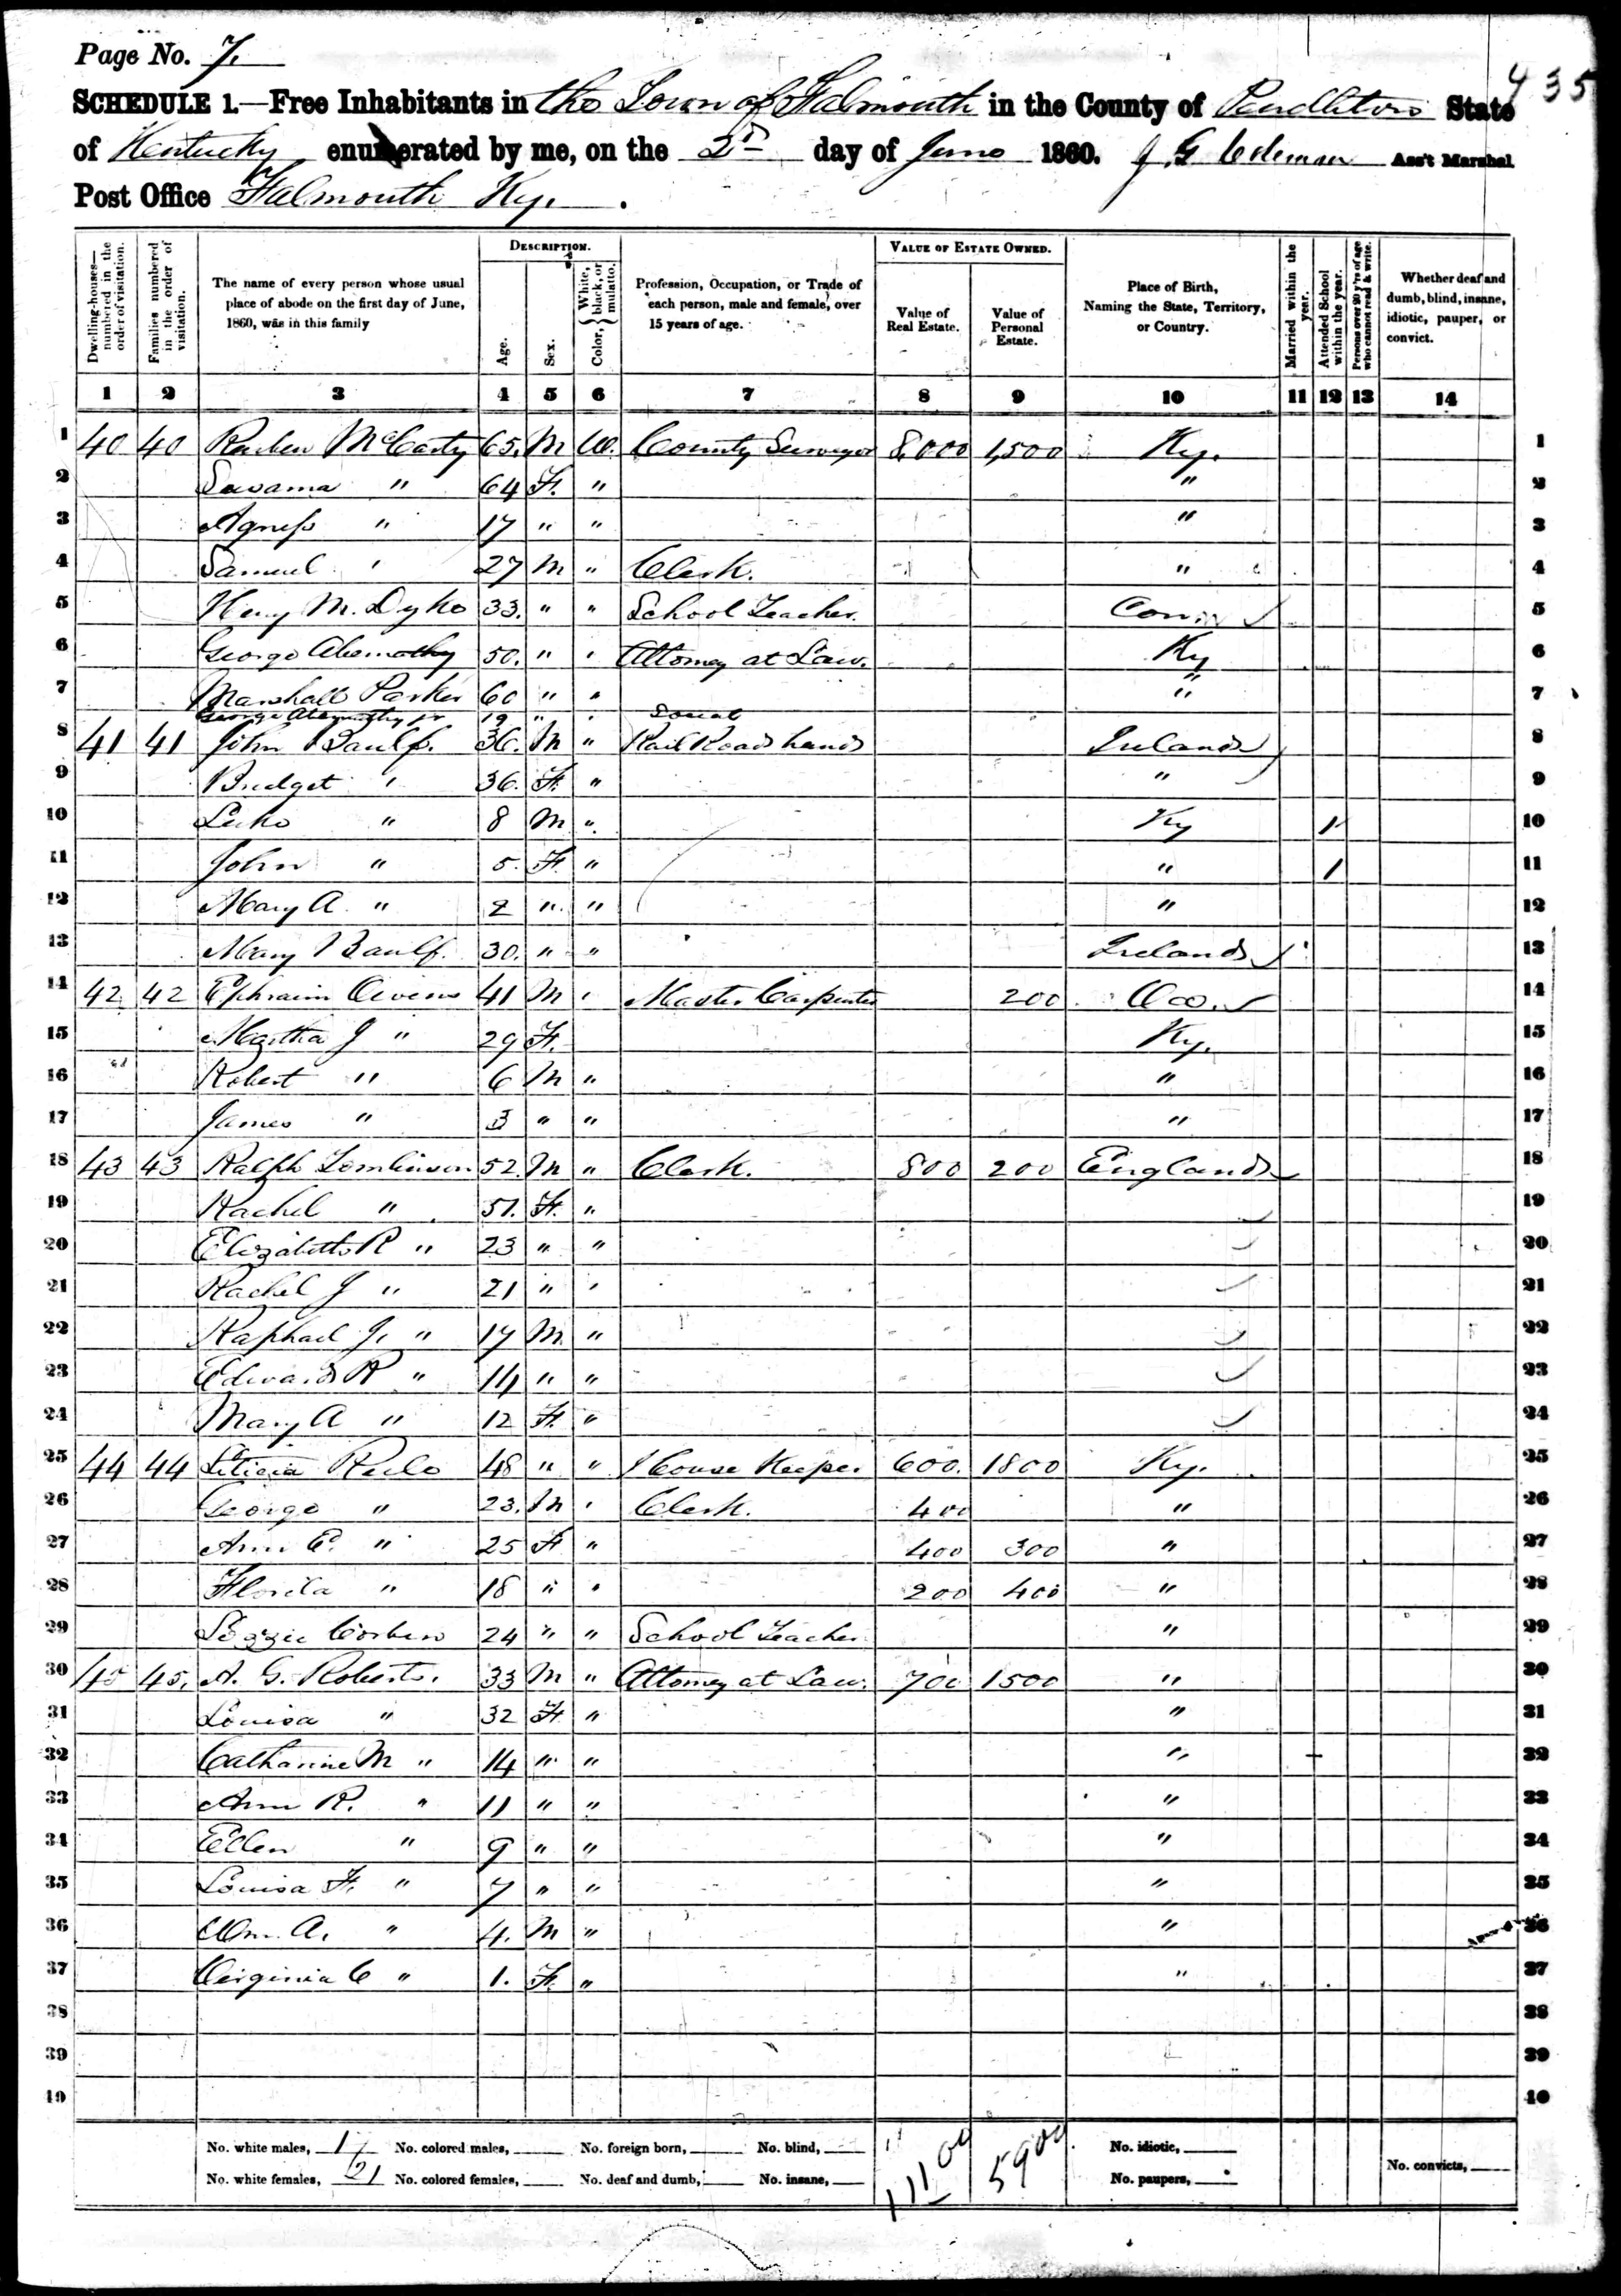 Page No. 7.
435
SCHEDULE 1.—Free Inhabitants in the Town of Falmouth in the County of Pendleton State
of Kentucky enumerated by me, on the 2d day of June 1860. J G Coleman Ass't Marshal
Post Office Falmouth Ky.
Dwelling-houses—numbered in the order of visitation. Families numbered in the order of visitation. The name of every person whose usual place of abode on the first day of June, 1860, was in this family DESCRIPTION. Age. Sex. Color, { White, black, or mulatto. Profession, Occupation, or Trade of each person, male and female, over 15 years of age. VALUE OF ESTATE OWNED. Value of Real Estate. Value of Personal Estate. Place of Birth, Naming the State, Territory, or Country. Married within the year. Attended School within the year. Persons over 20 y'rs of age who cannot read & write. Whether deaf and dumb, blind, insane, idiotic, pauper, or convict.
1 2 3 4 5 6 7 8 9 10 11 12 13 14
1 40 40 Reuben McCarty 65. M W. County Surveyor 8,000 1,500 Ky. 1
2 " 64 F. " " 2
3 Agness " 17 " " " 3
4 Samuel " 27 M " Clerk. " 4
5 Henry M. Dyke 33. " " School Teacher. Conn 5
6 George Abernathy 50. " " Attorney at Law. Ky 6
7 Marshall Parker 60 " " " 7
George Abernathy jr 19 " "
8 41 41 John 36. M " Rail Road hand Ireland 8
9 Bridget " 36. F. " " 9
10 Luke " 8 M " Ky 1 10
11 John " 5. F. " " 1 11
12 Mary A. " 2 " " " 12
13 Mary 30. " " Ireland 13
14 42 42 Ephraim 41 M " Master Carpenter 200 14
15 Martha J " 29 F. Ky. 15
16 Robert " 6 M " " 16
17 James " 3 " " " 17
18 43 43 Ralph Tomlinson 52. M " Clerk. 800 200 England 18
19 Rachel " 51. F. " 19
20 Elizabeth R " 23 " " 20
21 Rachel J " 21 " " 21
22 Raphael J. " 17 M. " 22
23 Edward R " 14 " " 23
24 Mary A " 12 F. " 24
25 44 44 Leticia 48 " " House Keeper 600. 1800 Ky. 25
26 George " 23. M " Clerk. 400 " 26
27 Ann E. " 25 F " 400 300 " 27
28 Florida " 18 " " 200 400 " 28
29 Lizzie Corbin 24 " " School Teacher " 29
30 45 45. A. G. Roberts. 33 M " Attorney at Law. 700 1500 " 30
31 Louisa " 32 F. " " 31
32 Catharine M " 14 " " " 32
33 Ann R. " 11 " " " 33
34 Ellen " 9 " " " 34
35 Louisa F. " 7 " " " 35
36 Wm. A. " 4. M " " 36
37 Virginia C " 1. F. " " 37
38 38
39 39
40 40
No. white males, 17 No. colored males, No. foreign born, No. blind, 11100 5900 No. idiotic,
No. white females, 21 No. colored females, No. deaf and dumb, No. insane, No. paupers, No. convicts,